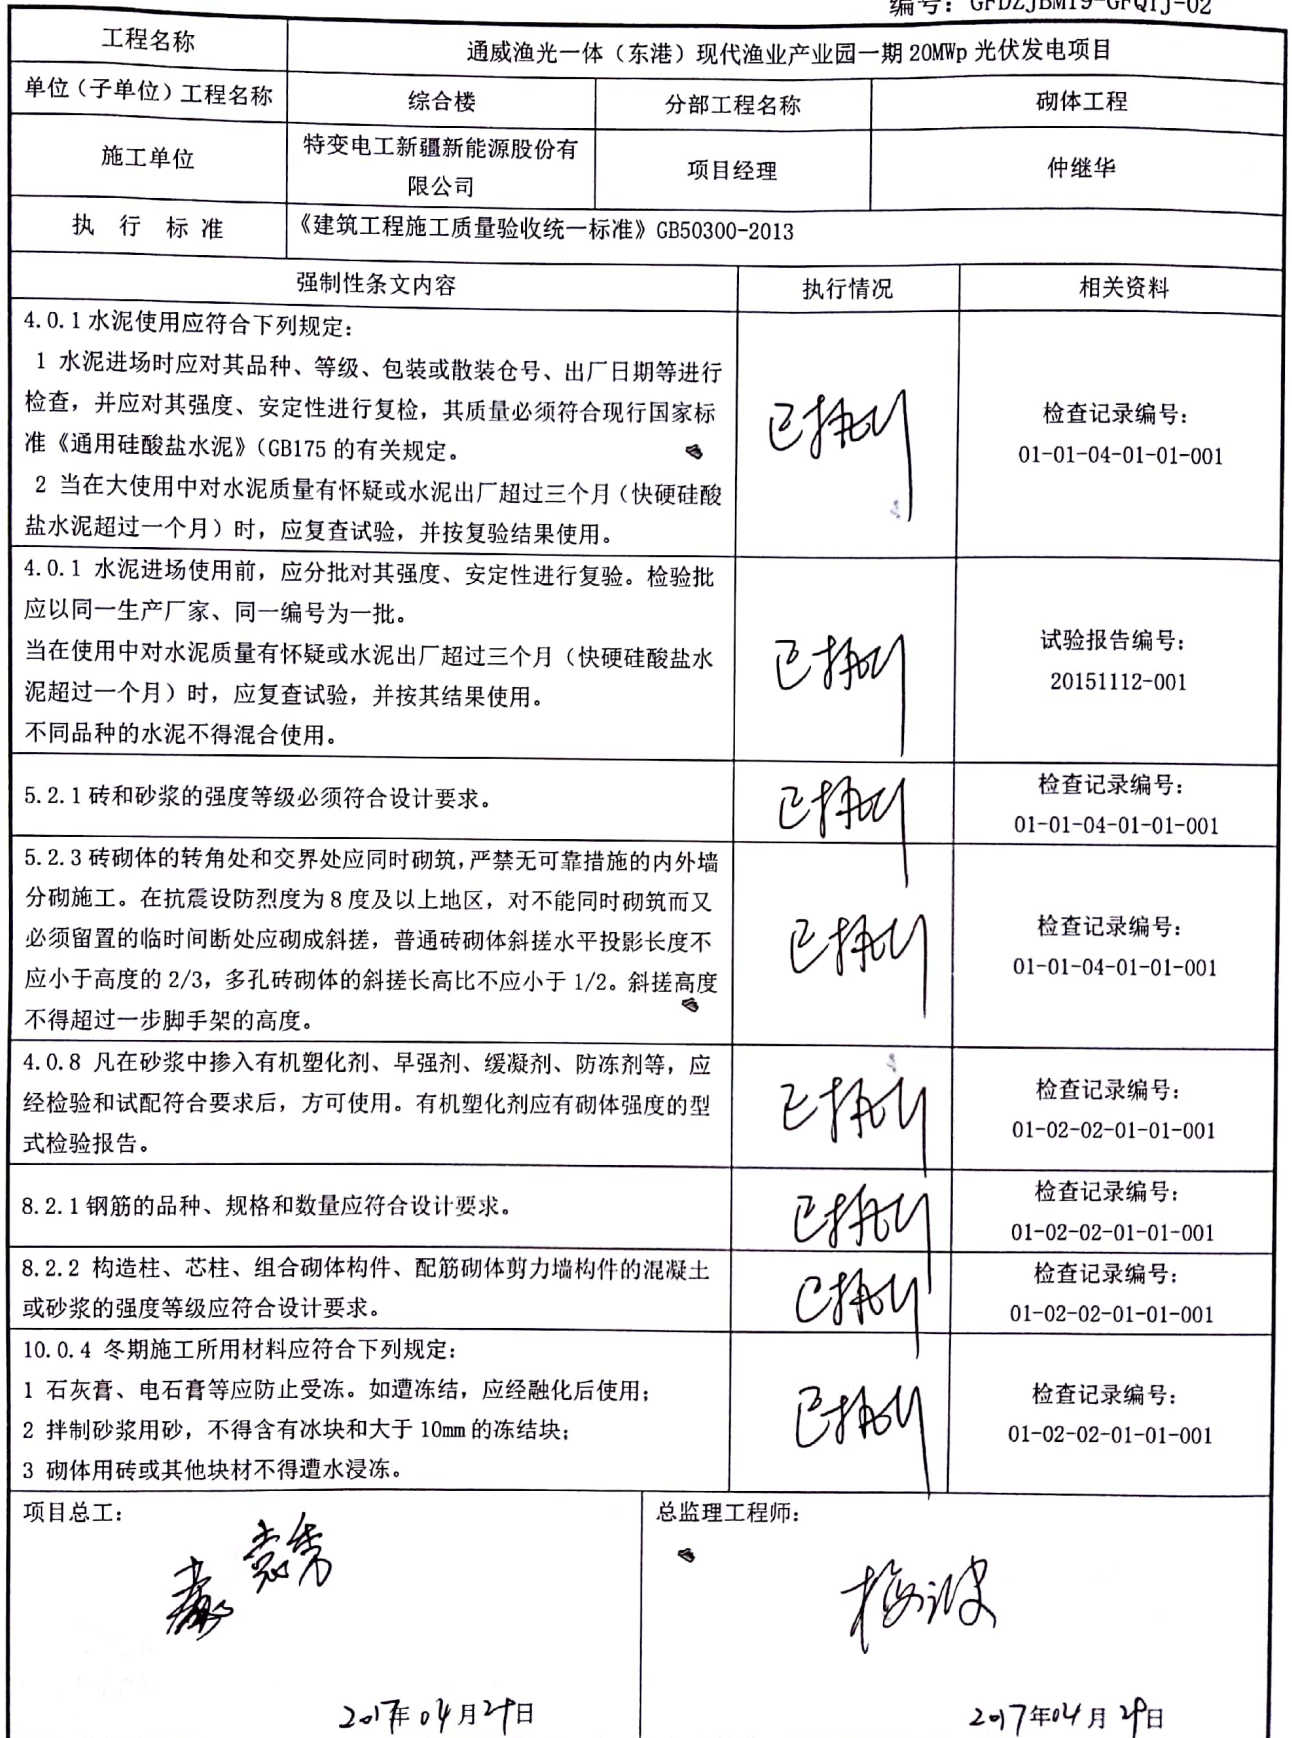 编号：GFDZJBM19-GFQTJ-02
工程名称
通威渔光一体（东港）现代渔业产业园一期20MWp光伏发电项目
单位（子单位）工程名称
综合楼
分部工程名称
砌体工程
施工单位
特变电工新疆新能源股份有
限公司
项目经理
仲继华
执 行 标 准
《建筑工程施工质量验收统一标准》GB50300-2013
强制性条文内容
执行情况
相关资料
4.0.1水泥使用应符合下列规定：
1 水泥进场时应对其品种、等级、包装或散装仓号、出厂日期等进行
检查，并应对其强度、安定性进行复检，其质量必须符合现行国家标
准《通用硅酸盐水泥》（GB175的有关规定。
2 当在大使用中对水泥质量有怀疑或水泥出厂超过三个月（快硬硅酸
盐水泥超过一个月）时，应复查试验，并按复验结果使用。
已执行
检查记录编号：
01-01-04-01-01-001
4.0.1 水泥进场使用前，应分批对其强度、安定性进行复验。检验批
应以同一生产厂家、同一编号为一批。
当在使用中对水泥质量有怀疑或水泥出厂超过三个月（快硬硅酸盐水
泥超过一个月）时，应复查试验，并按其结果使用。
不同品种的水泥不得混合使用。
已执行
试验报告编号：
20151112-001
5.2.1砖和砂浆的强度等级必须符合设计要求。
已执行
检查记录编号：
01-01-04-01-01-001
5.2.3砖砌体的转角处和交界处应同时砌筑,严禁无可靠措施的内外墙
分砌施工。在抗震设防烈度为8度及以上地区，对不能同时砌筑而又
必须留置的临时间断处应砌成斜搓，普通砖砌体斜搓水平投影长度不
应小于高度的2/3，多孔砖砌体的斜搓长高比不应小于1/2。斜搓高度
不得超过一步脚手架的高度。
已执行
检查记录编号：
01-01-04-01-01-001
4.0.8 凡在砂浆中掺入有机塑化剂、早强剂、缓凝剂、防冻剂等，应
经检验和试配符合要求后，方可使用。有机塑化剂应有砌体强度的型
式检验报告。
已执行
检查记录编号：
01-02-02-01-01-001
8.2.1钢筋的品种、规格和数量应符合设计要求。
已执行
检查记录编号：
01-02-02-01-01-001
8.2.2 构造柱、芯柱、组合砌体构件、配筋砌体剪力墙构件的混凝土
或砂浆的强度等级应符合设计要求。
已执行
检查记录编号：
01-02-02-01-01-001
10.0.4 冬期施工所用材料应符合下列规定：
1 石灰膏、电石膏等应防止受冻。如遭冻结，应经融化后使用；
2 拌制砂浆用砂，不得含有冰块和大于10mm的冻结块；
3 砌体用砖或其他块材不得遭水浸冻。
已执行
检查记录编号：
01-02-02-01-01-001
项目总工：
2017年04月29日
总监理工程师：
2017年04月29日